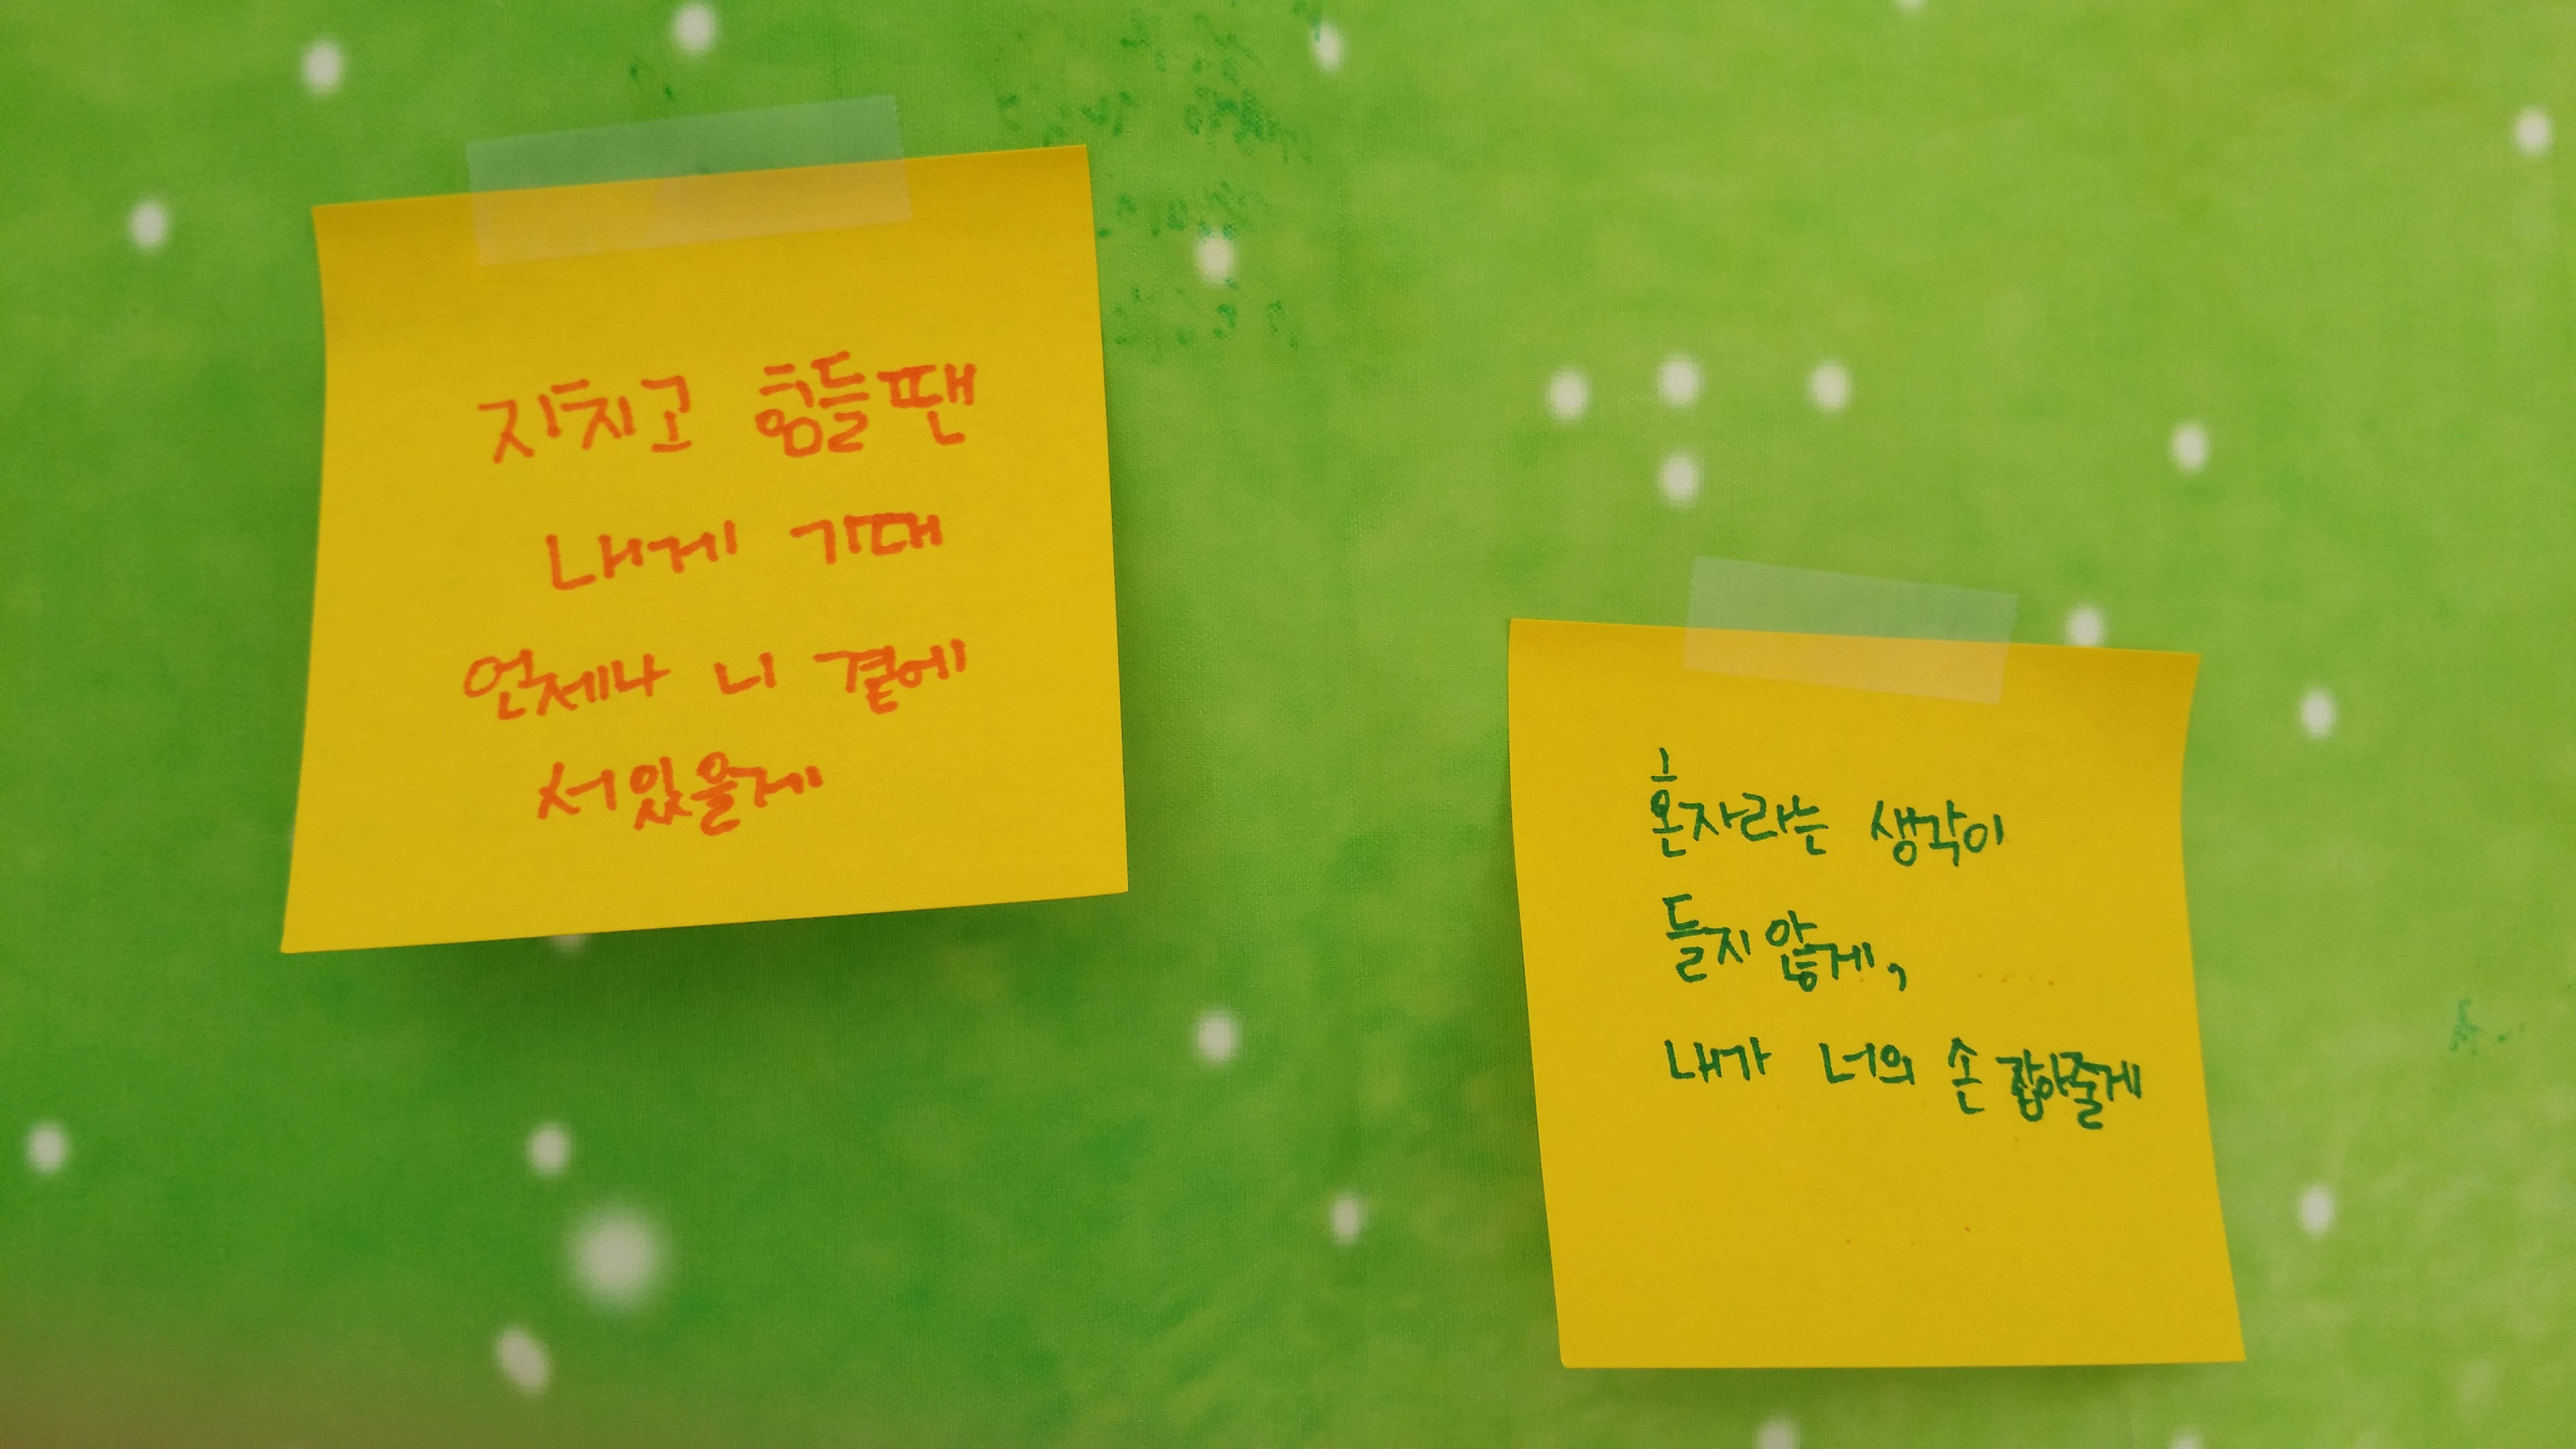 지치고 힘들땐
내게 기대
언제나 니 곁에
서있을게
혼자라는 생각이
들지않게,
내가 너의 손 잡아줄게